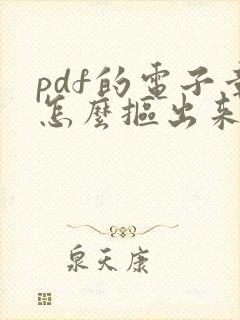 pdf的電子章
怎麼摳出來
泉天康